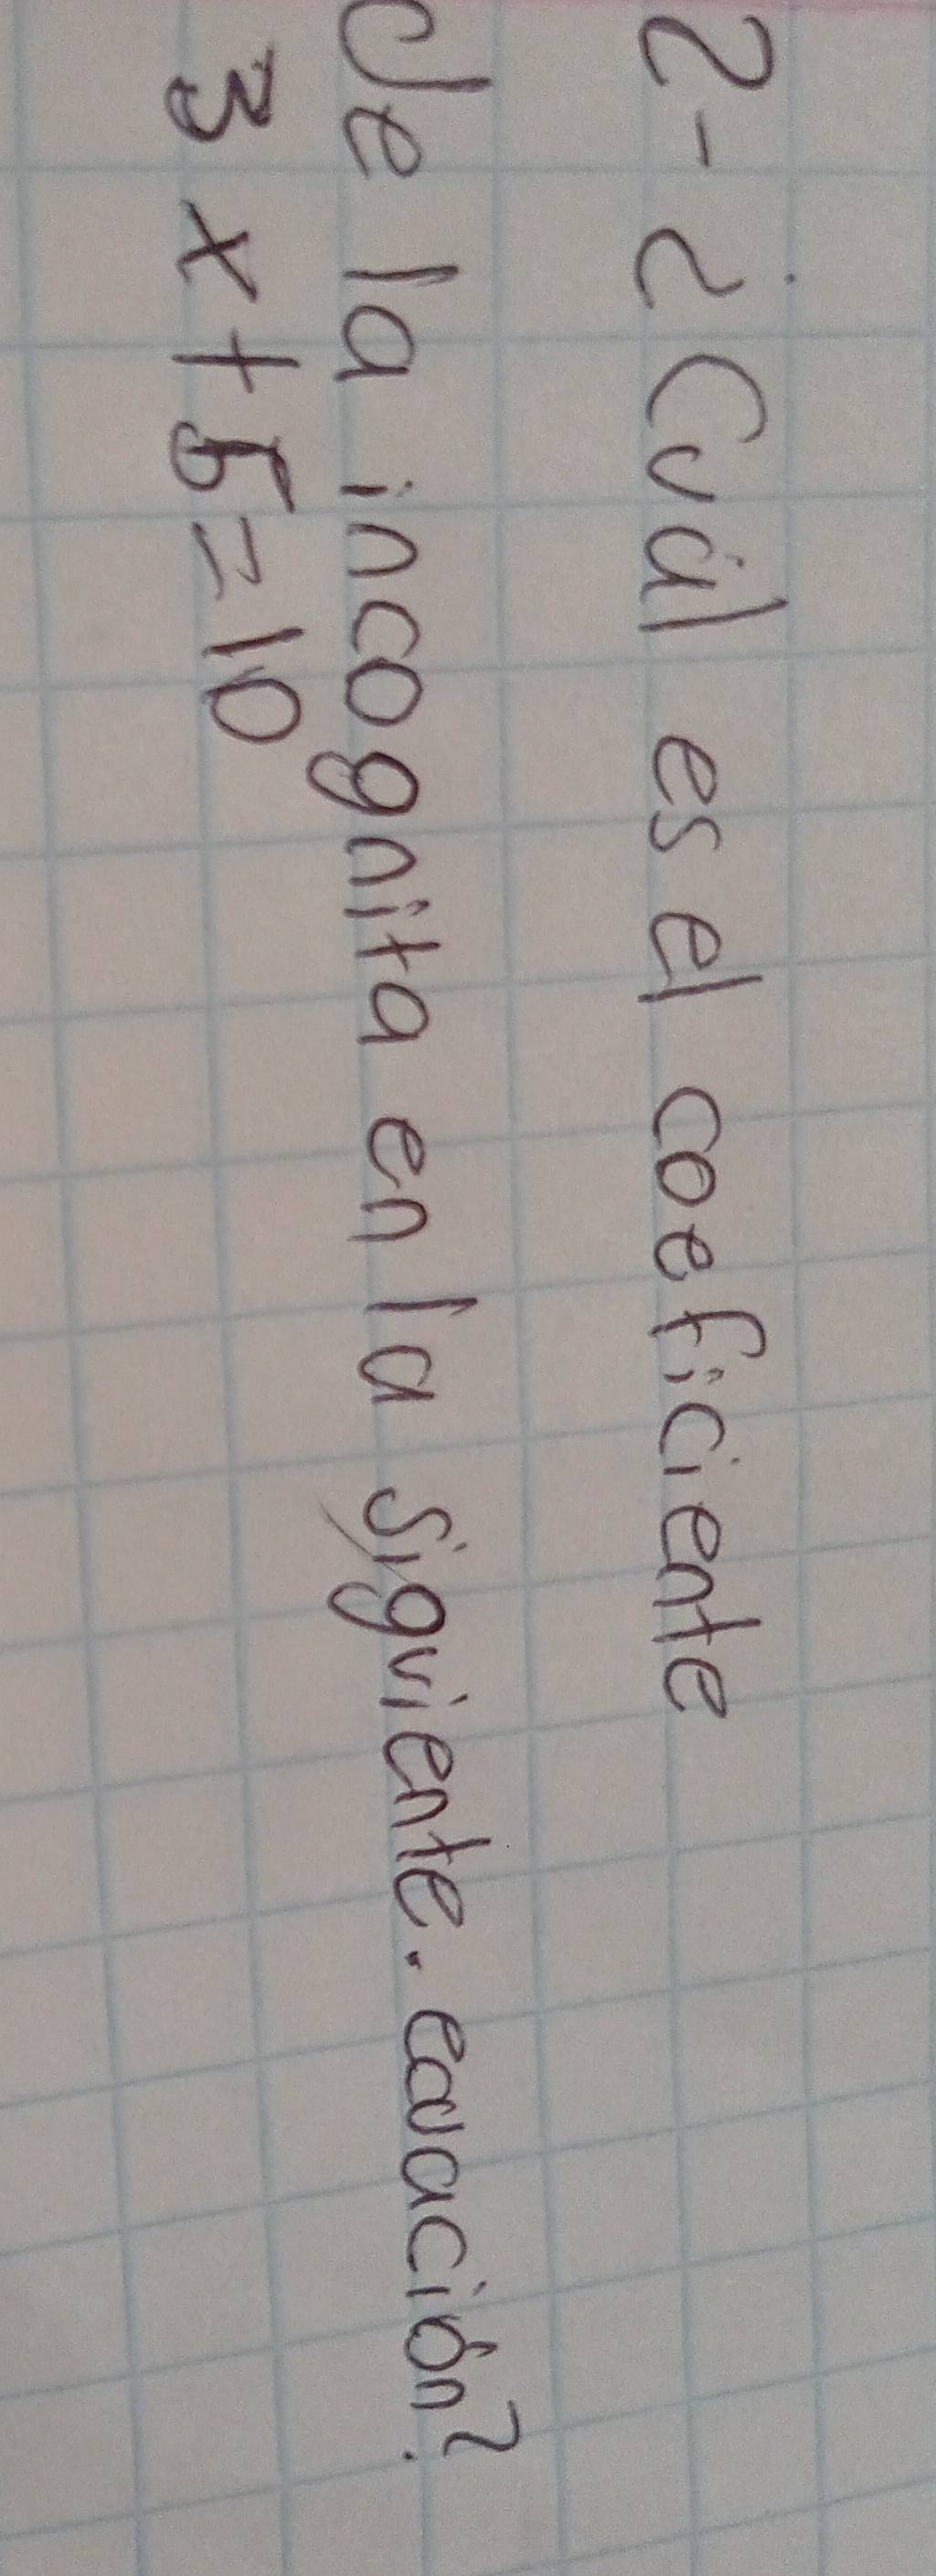 2- ¿Cuál es el coeficiente
de la incognita en la siguiente. ecuación?
3x+5=10